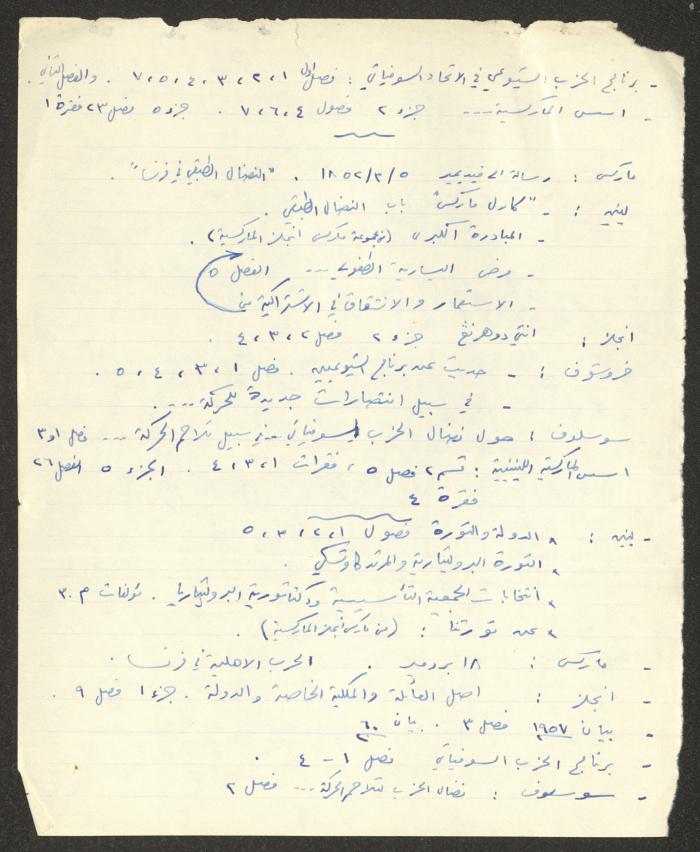 - برنامج الحزب الشيوعي في الاتحاد السوفياتي : فصل اول ١ ، ٢ ، ٣ ، ٤ ، ٥ ، ٧ . والفصل الثاني .
- اسس الماركسية ... جزء ٢ فصول ٤ ، ٦ ، ٧ . جزء ٥ فصل ٢٣ فقرة ١
ماركس : رسالة الى فيديمير ٥/٣/١٨٥٢ . "النضال الطبقي في فرنسا" .
لينين : - "كارل ماركس" باب النضال الطبقي .
- المبادرة الكبرى (مجموعة ماركس انجلز الماركسية) .
- مرض اليسارية الطفولي ... الفصل ٥
- الاستعمار والانشقاق في الاشتراكية
انجلز : انتي دوهرنغ جزء ٢ فصل ٢ ، ٣ ، ٤ .
خروشوف : - حديث عن برنامج الشيوعيين . فصل ١ ، ٣ ، ٤ ، ٥ .
- في سبيل انتصارات جديدة للحركة ... .
سوسلوف : حول نضال الحزب السوفياتي في سبيل تلاحم الحركة ... فصل ١ و ٣
اسس الماركسية اللينينية : قسم ٢ فصل ٥ ، فقرات ١ ، ٣ ، ٤ . الجزء ٥ الفصل ٢٦
فقرة ٤
- لينين : ٨ الدولة والثورة فصول ١ ، ٢ ، ٣ ، ٥
٨ الثورة البروليتارية والمرتد كاوتسكي .
٨ انتخابات الجمعية التأسيسية ودكتاتورية البروليتاريا . مؤلفات م ٣٠
٨ عن ثورتنا : (من ماركس انجلز الماركسية) .
- ماركس : ١٨ برومير . الحرب الاهلية في فرنسا .
- انجلز : اصل العائلة والملكية الخاصة والدولة . جزء ١ فصل ٩ .
- بيان ١٩٥٧ فصل ٣ . بيان ٦٠
- برنامج الحزب السوفياتي فصل ١ - ٤ .
- سوسلوف : نضال الحزب لتلاحم الحركة ... فصل ٢